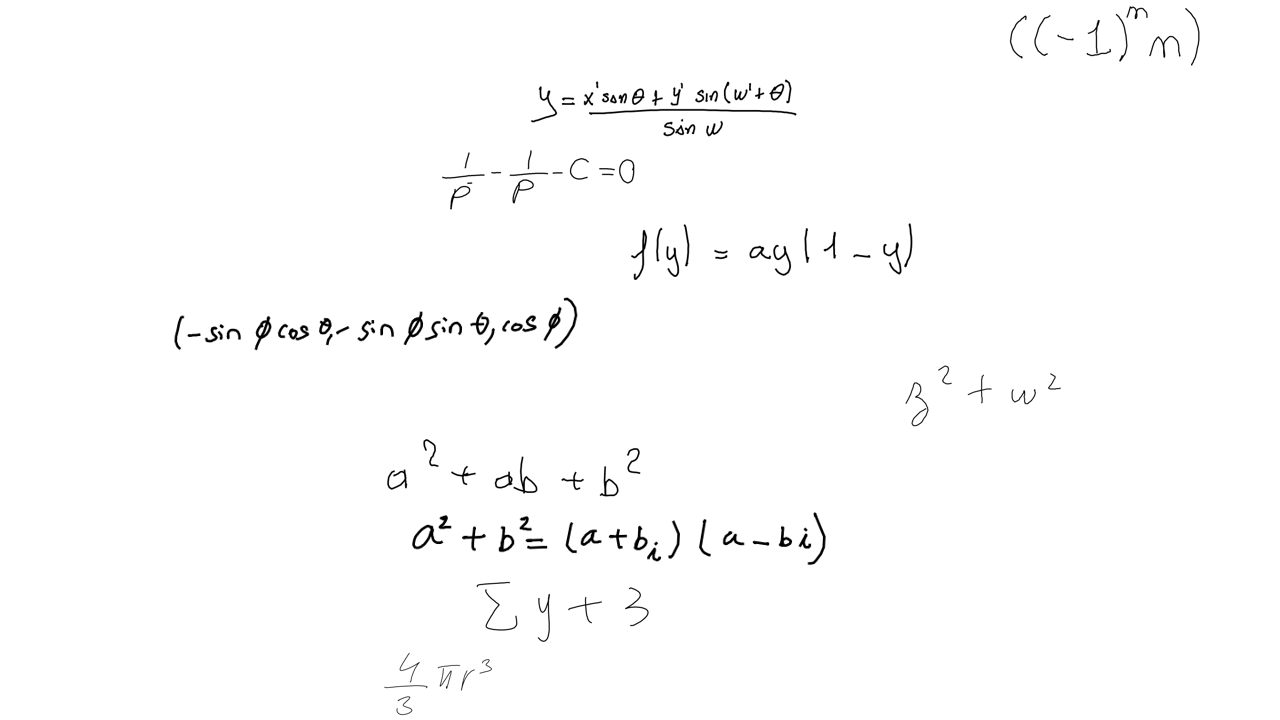 ((-1)^n n)
y = \frac{x' sin θ + y' sin(w' + θ)}{sin w}
\frac{1}{p^-} - \frac{1}{p} - C = 0
f(y) = ay(1 - y)
(-sin ϕ cos θ, - sin ϕ sin θ, cos ϕ)
z^2 + w^2
a^2 + ab + b^2
a^2 + b^2 = (a + b_i)(a - bi)
∑ y + 3
\frac{4}{3} πr^3